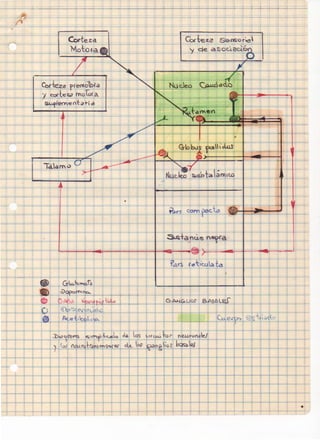 Corteza
Motora
Corteza Sensorial
y de asociación
Corteza premotora
y corteza motora
suplementaria
Núcleo Caudado
Putamen
Globus pallidus
Tálamo
Núcleo subtalámico
Pars compacta
Sustancia negra
Pars reticulata
Glutamato
Dopamina
GANGLIOS BASALES
Acetilcolina
Cuerpo Estriado
Diagrama simplificado de los circuitos neuronales
y los neurotransmisores de los ganglios basales